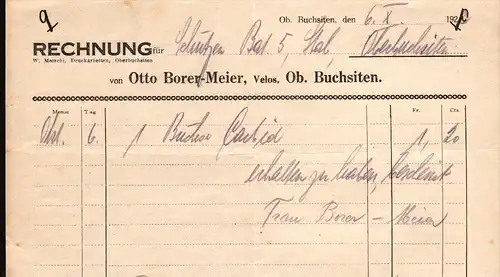 Ob. Buchsiten, den 6. X. 192
RECHNUNG für Schützen Bat. 5, Stab, Oberbuchsiten
W. Maischi, Druckarbeiten, Oberbuchsiten
von Otto Borer-Meier, Velos, Ob. Buchsiten.
Monat Tag Fr. Cts
Okt. 6. 1 Büchse Carbid 1, 20
erhalten zu haben, bescheint
Frau Borer - Meier